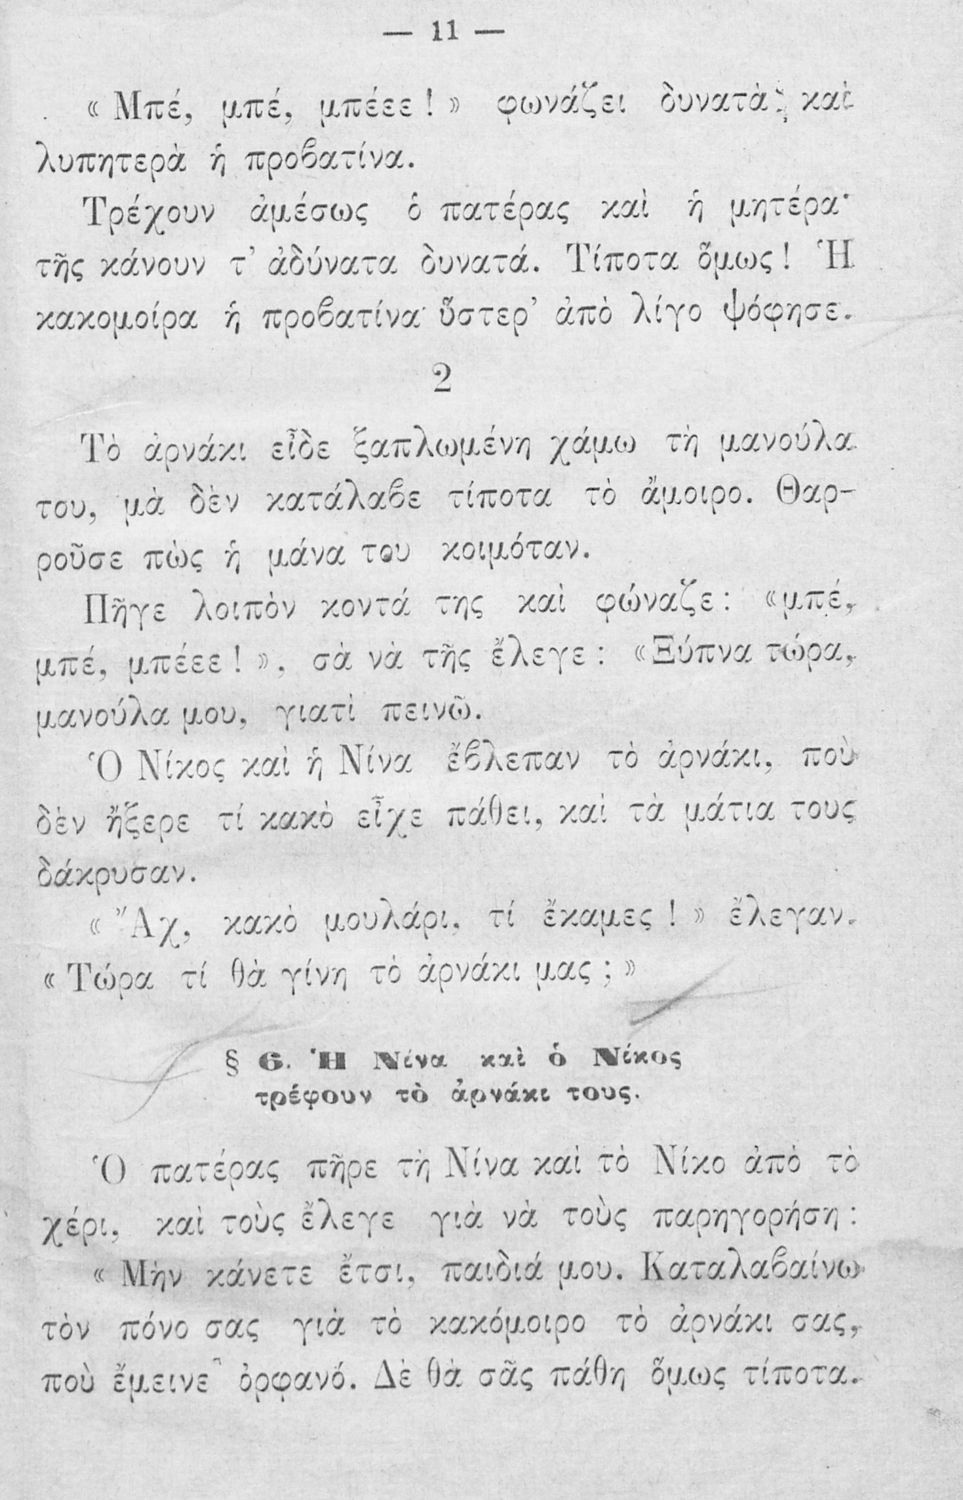 — 11 —
« Μπέ, μπέ, μπέεε ! » φωνάζει δυνατὰ καὶ
λυπητερὰ ἡ προβατίνα.
Τρέχουν ἀμέσως ὁ πατέρας καὶ ἡ μητέρα·
τῆς κάνουν τ’ ἀδύνατα δυνατά. Τίποτα ὅμως ! Ἡ
κακομοίρα ἡ προβατίνα ὕστερ’ ἀπὸ λίγο ψόφησε.
2
Τὸ ἀρνάκι εἶδε ξαπλωμένη χάμω τὴ μανούλα
του, μὰ δὲν κατάλαβε τίποτα τὸ ἄμοιρο. Θαρ-
ροῦσε πὼς ἡ μάνα του κοιμόταν.
Πῆγε λοιπὸν κοντά της καὶ φώναζε : «μπέ,
μπέ, μπέεε ! », σὰ νὰ τῆς ἔλεγε : «Ξύπνα τώρα,
μανούλα μου, γιατὶ πεινῶ.
Ὁ Νίκος καὶ ἡ Νίνα ἔβλεπαν τὸ ἀρνάκι, ποὺ
δὲν ἤξερε τί κακὸ εἶχε πάθει, καὶ τὰ μάτια τους
δάκρυσαν.
« Ἄχ, κακὸ μουλάρι, τί ἔκαμες ! » ἔλεγαν.
« Τώρα τί θὰ γίνη τὸ ἀρνάκι μας ; »
§ 6. Ἡ Νίνα καὶ ὁ Νίκος
τρέφουν τὸ ἀρνάκι τους.
Ὁ πατέρας πῆρε τὴ Νίνα καὶ τὸ Νίκο ἀπὸ τὸ
χέρι, καὶ τοὺς ἔλεγε γιὰ νὰ τοὺς παρηγορήση :
« Μὴν κάνετε ἔτσι, παιδιά μου. Καταλαβαίνω
τὸν πόνο σας γιὰ τὸ κακόμοιρο τὸ ἀρνάκι σας,
ποὺ ἔμεινε ὀρφανό. Δὲ θὰ σᾶς πάθη ὅμως τίποτα.